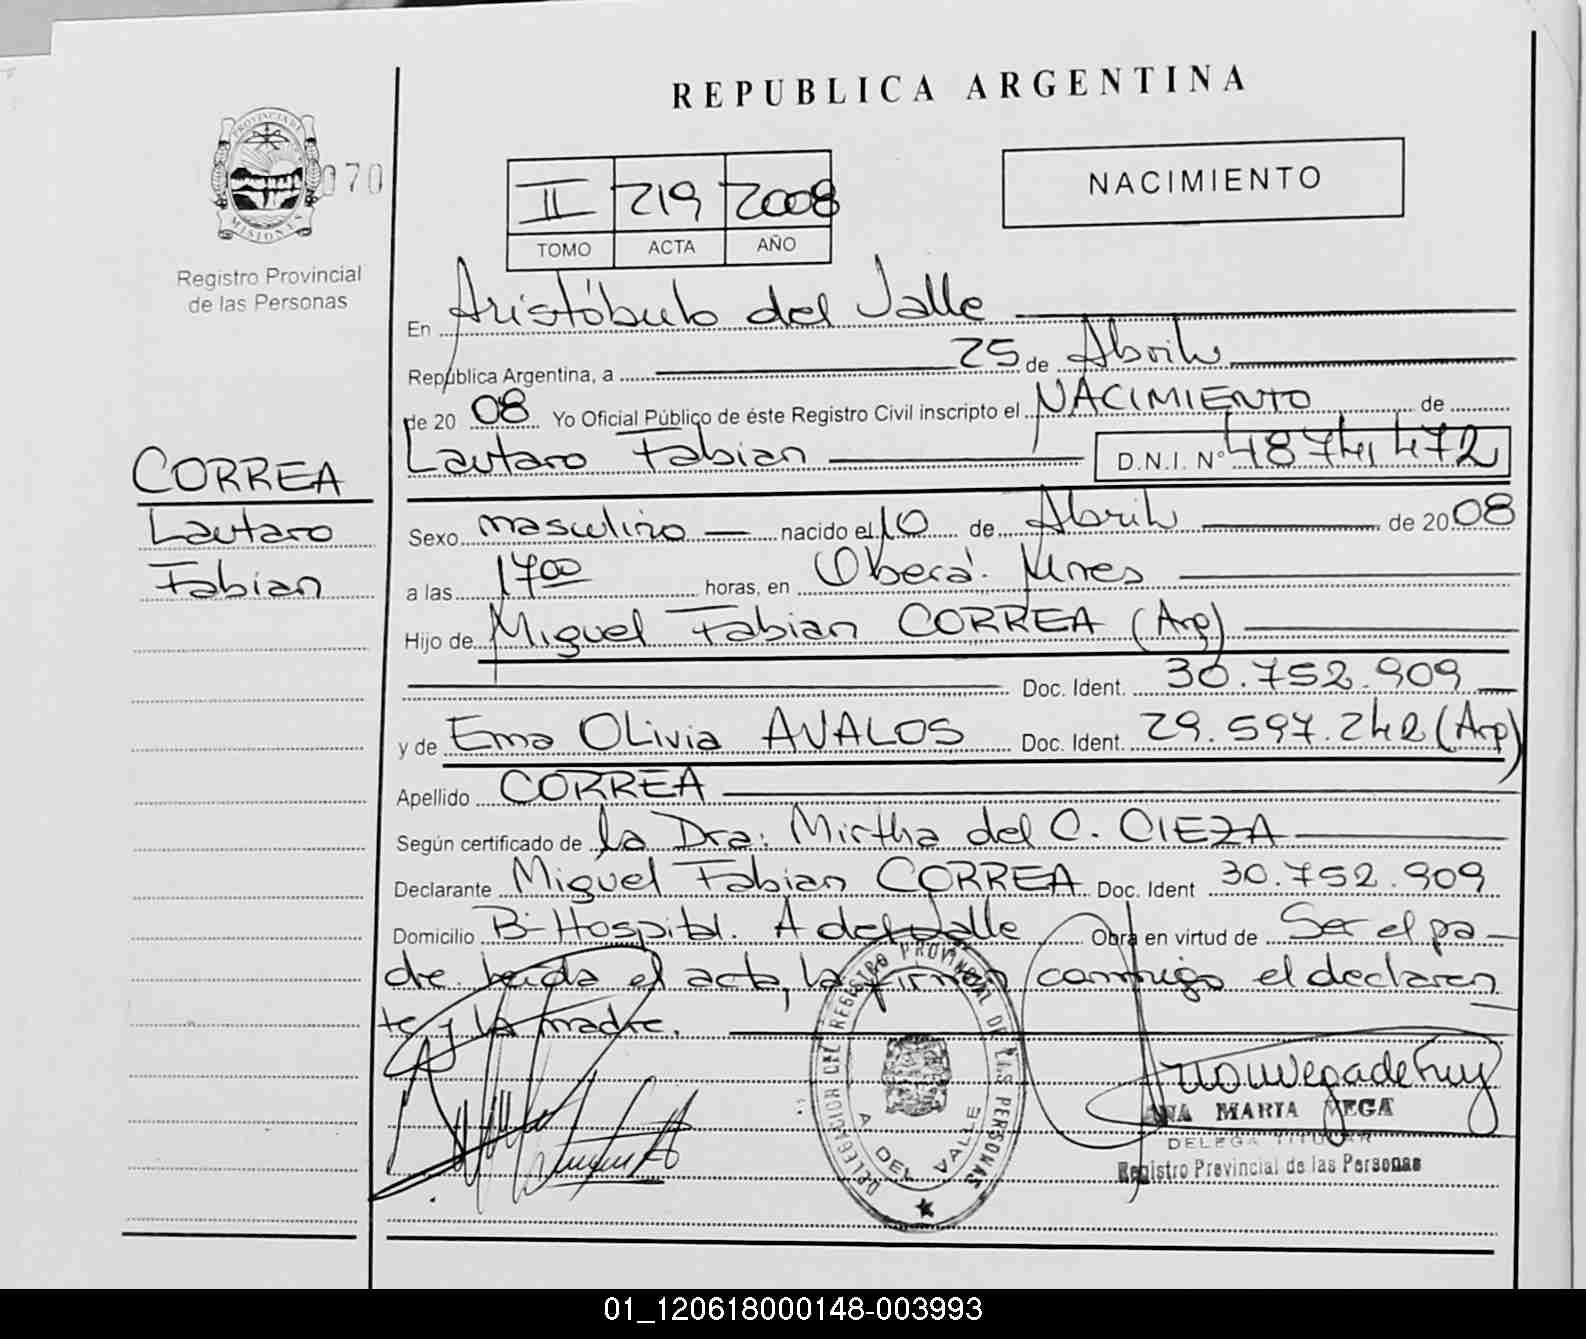 REPUBLICA ARGENTINA
PROVINCIA DE
MISIONES
070
Registro Provincial
de las Personas
II 219 2008
TOMO ACTA AÑO
NACIMIENTO
En Aristóbulo del Valle
República Argentina, a 25 de Abril
de 20 08 Yo Oficial Público de éste Registro Civil inscripto el NACIMIENTO de
Lautaro Fabian D.N.I. Nº 48741472
CORREA
Lautaro
Fabian
Sexo masculino nacido el 10 de Abril de 20 08
a las 1700 horas, en Oberá. Mnes
Hijo de Miguel Fabian CORREA (Arg)
Doc. Ident. 30.752.909
y de Ema OLivia AVALOS Doc. Ident. 29.597.242 (Arg)
Apellido CORREA
Según certificado de la Dra: Mirtha del C. CIEZA
Declarante Miguel Fabian CORREA Doc. Ident 30.752.909
Domicilio Bº Hospital. A del Valle Obra en virtud de Ser el pa-
dre leida el acta, la firman conmigo el declaran
te y la madre.
DELEGACION DEL REGISTRO PROVINCIAL DE LAS PERSONAS
A DEL VALLE
ANA MARIA VEGA
DELEGA TITULAR
Registro Provincial de las Personas
01_120618000148-003993